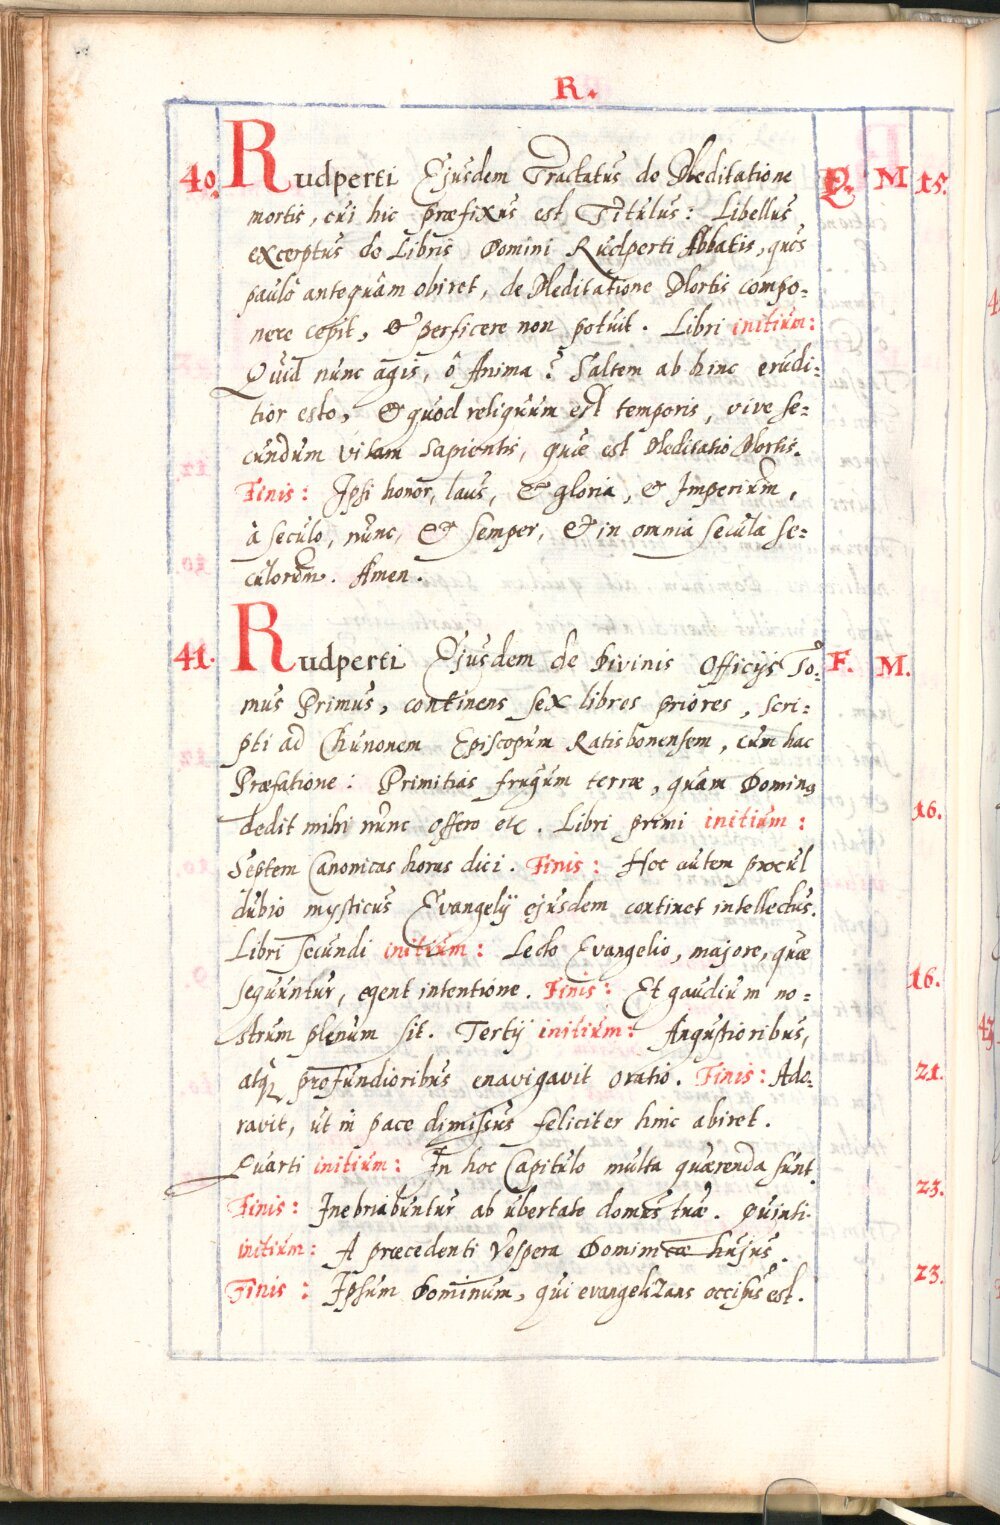 R.
40. Rudperti Ejusdem Tractatus de Meditatione Q. M. 15.
mortis, cui hic præfixus est Titulus: Libellus
excerptus de Libris Domini Rudperti Abbatis, quos
paulò antequàm obiret, de Meditatione Mortis compo-
nere cepit, & perficere non potuit. Libri initium:
Quid nunc agis, ô Anima? Saltem ab hinc erudi-
tior esto, & quod reliquum est temporis, vive se-
cundum vitam sapientis, quæ est Meditatio Mortis.
Finis: Ipsi honor, laus, & gloria, & Imperium,
à seculo, nunc, & semper, & in omnia secula se-
culorum. Amen.
41. Rudperti Ejusdem de Divinis Officijs To- F. M.
mus Primus, continens sex libros priores, scri-
pti ad Chunonem Episcopum Ratisbonensem, cum hac
Præfatione: Primitias frugum terræ, quam Dominꝰ
dedit mihi nunc offero etc. Libri primi initium: 16.
Septem Canonicas horas dici. Finis: Hoc autem procul
dubio mysticus Evangelij ejusdem continet intellectus.
Libri secundi initium: Lecto Evangelio, majore, quæ
sequuntur, egent intentione. Finis: Et gaudium no- 16.
strum plenum sit. Tertij initium: Angustioribus,
atq; profundioribus enavigavit oratio. Finis: Ado- 21.
ravit, ut in pace dimissus feliciter hinc abiret.
Quarti initium: In hoc Capitulo multa quærenda sunt.
Finis: Inebriabuntur ab ubertate domus tuæ. Quinti 23.
initium: A præcedenti Vespera Dominicæ hujus.
Finis: Ipsum Dominum, qui evangelizans occisus est. 23.